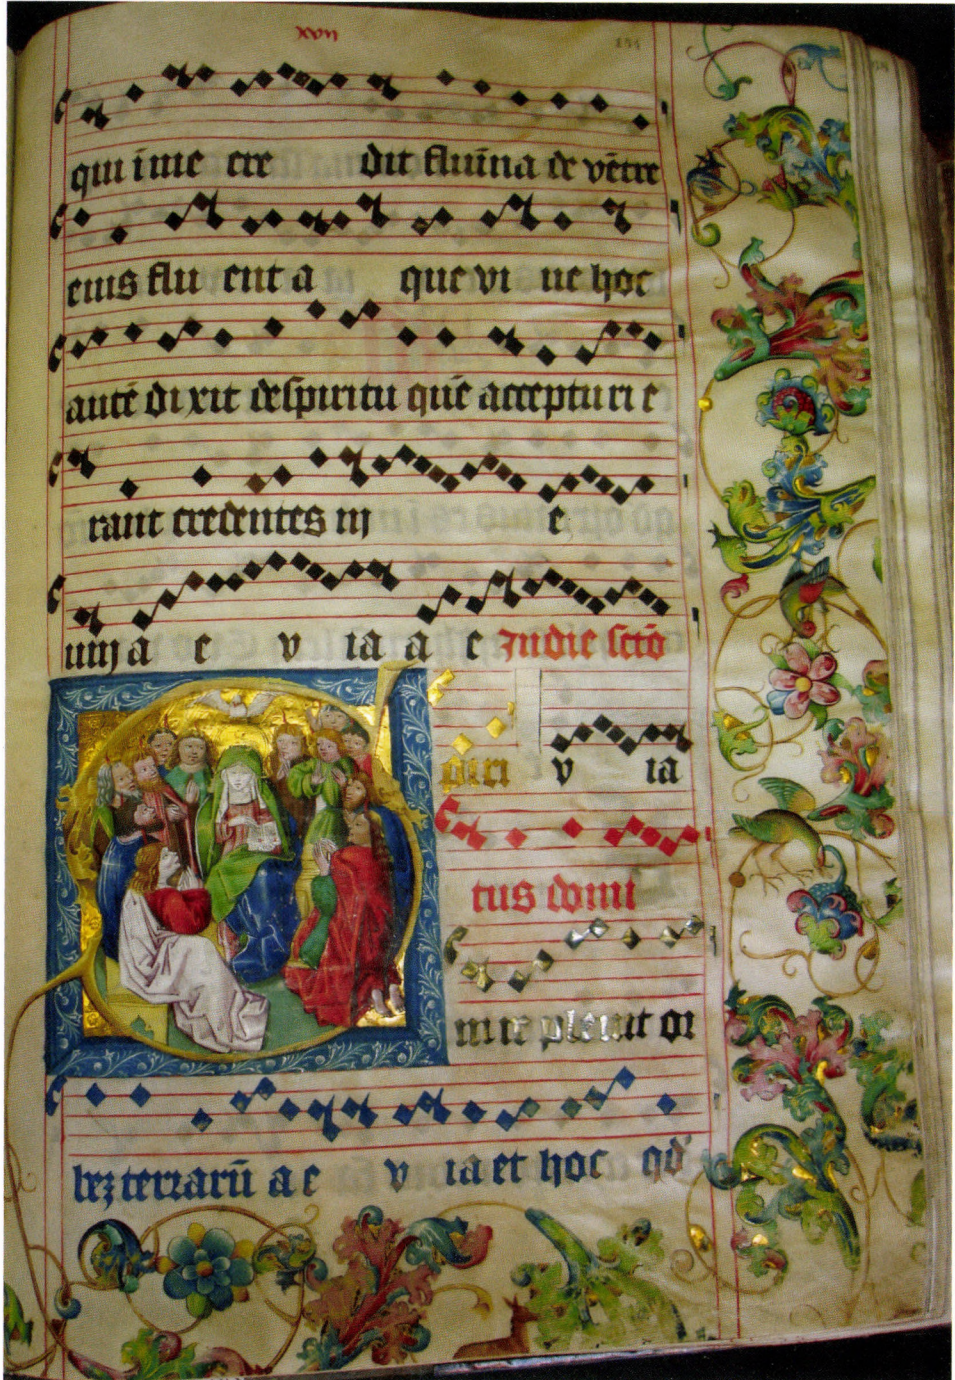 xvii
qui i me cre dit flumīna de vētre
eius flu ent a que vi ue hoc
autē di xit de spiritu quē accepturi e
rant credentes iij e
iiij a e v ia a e In die sctō
piri v ia
tus domi
ni re pleuit or
bez terrarū a e v ia et hoc qd̄